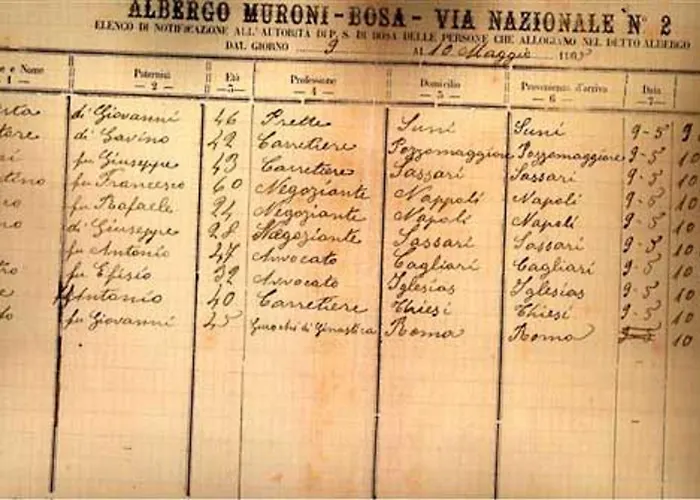 ALBERGO MURONI - BOSA - VIA NAZIONALE N° 2
ELENCO DI NOTIFICAZIONE ALL'AUTORITÀ DI P. S. DI BOSA DELLE PERSONE CHE ALLOGIANO NEL DETTO ALBERGO
DAL GIORNO 9 AL 10 Maggio
e Nome Paternità Età Professione Domicilio Provenienza d'arrivo Data
— 1 — — 2 — — 3 — — 4 — — 5 — — 6 — — 7 —
di Giovanni 46 Prete Suni Suni 9-5 9
di Gavino 42 Carretiere Pozzomaggiore Pozzomaggiore 9-5 10
fu Giuseppe 43 Carretiere Sassari Sassari 9-5 10
fu Francesco 60 Negoziante Nappoli Napoli 9-5 10
fu Rafaele 24 Negoziante Napoli Napoli 9-5 10
di Giuseppe 28 Negoziante Sassari Sassari 9-5 10
fu Antonio 47 Avvocato Cagliari Cagliari 9-5 10
fu Efisio 32 Avvocato Iglesias Iglesias 9-5 10
Antonio 40 Carretiere Thiesi Thiesi 9-5 10
fu Giovanni 45 Giuochi di Ginastica Roma Roma 10